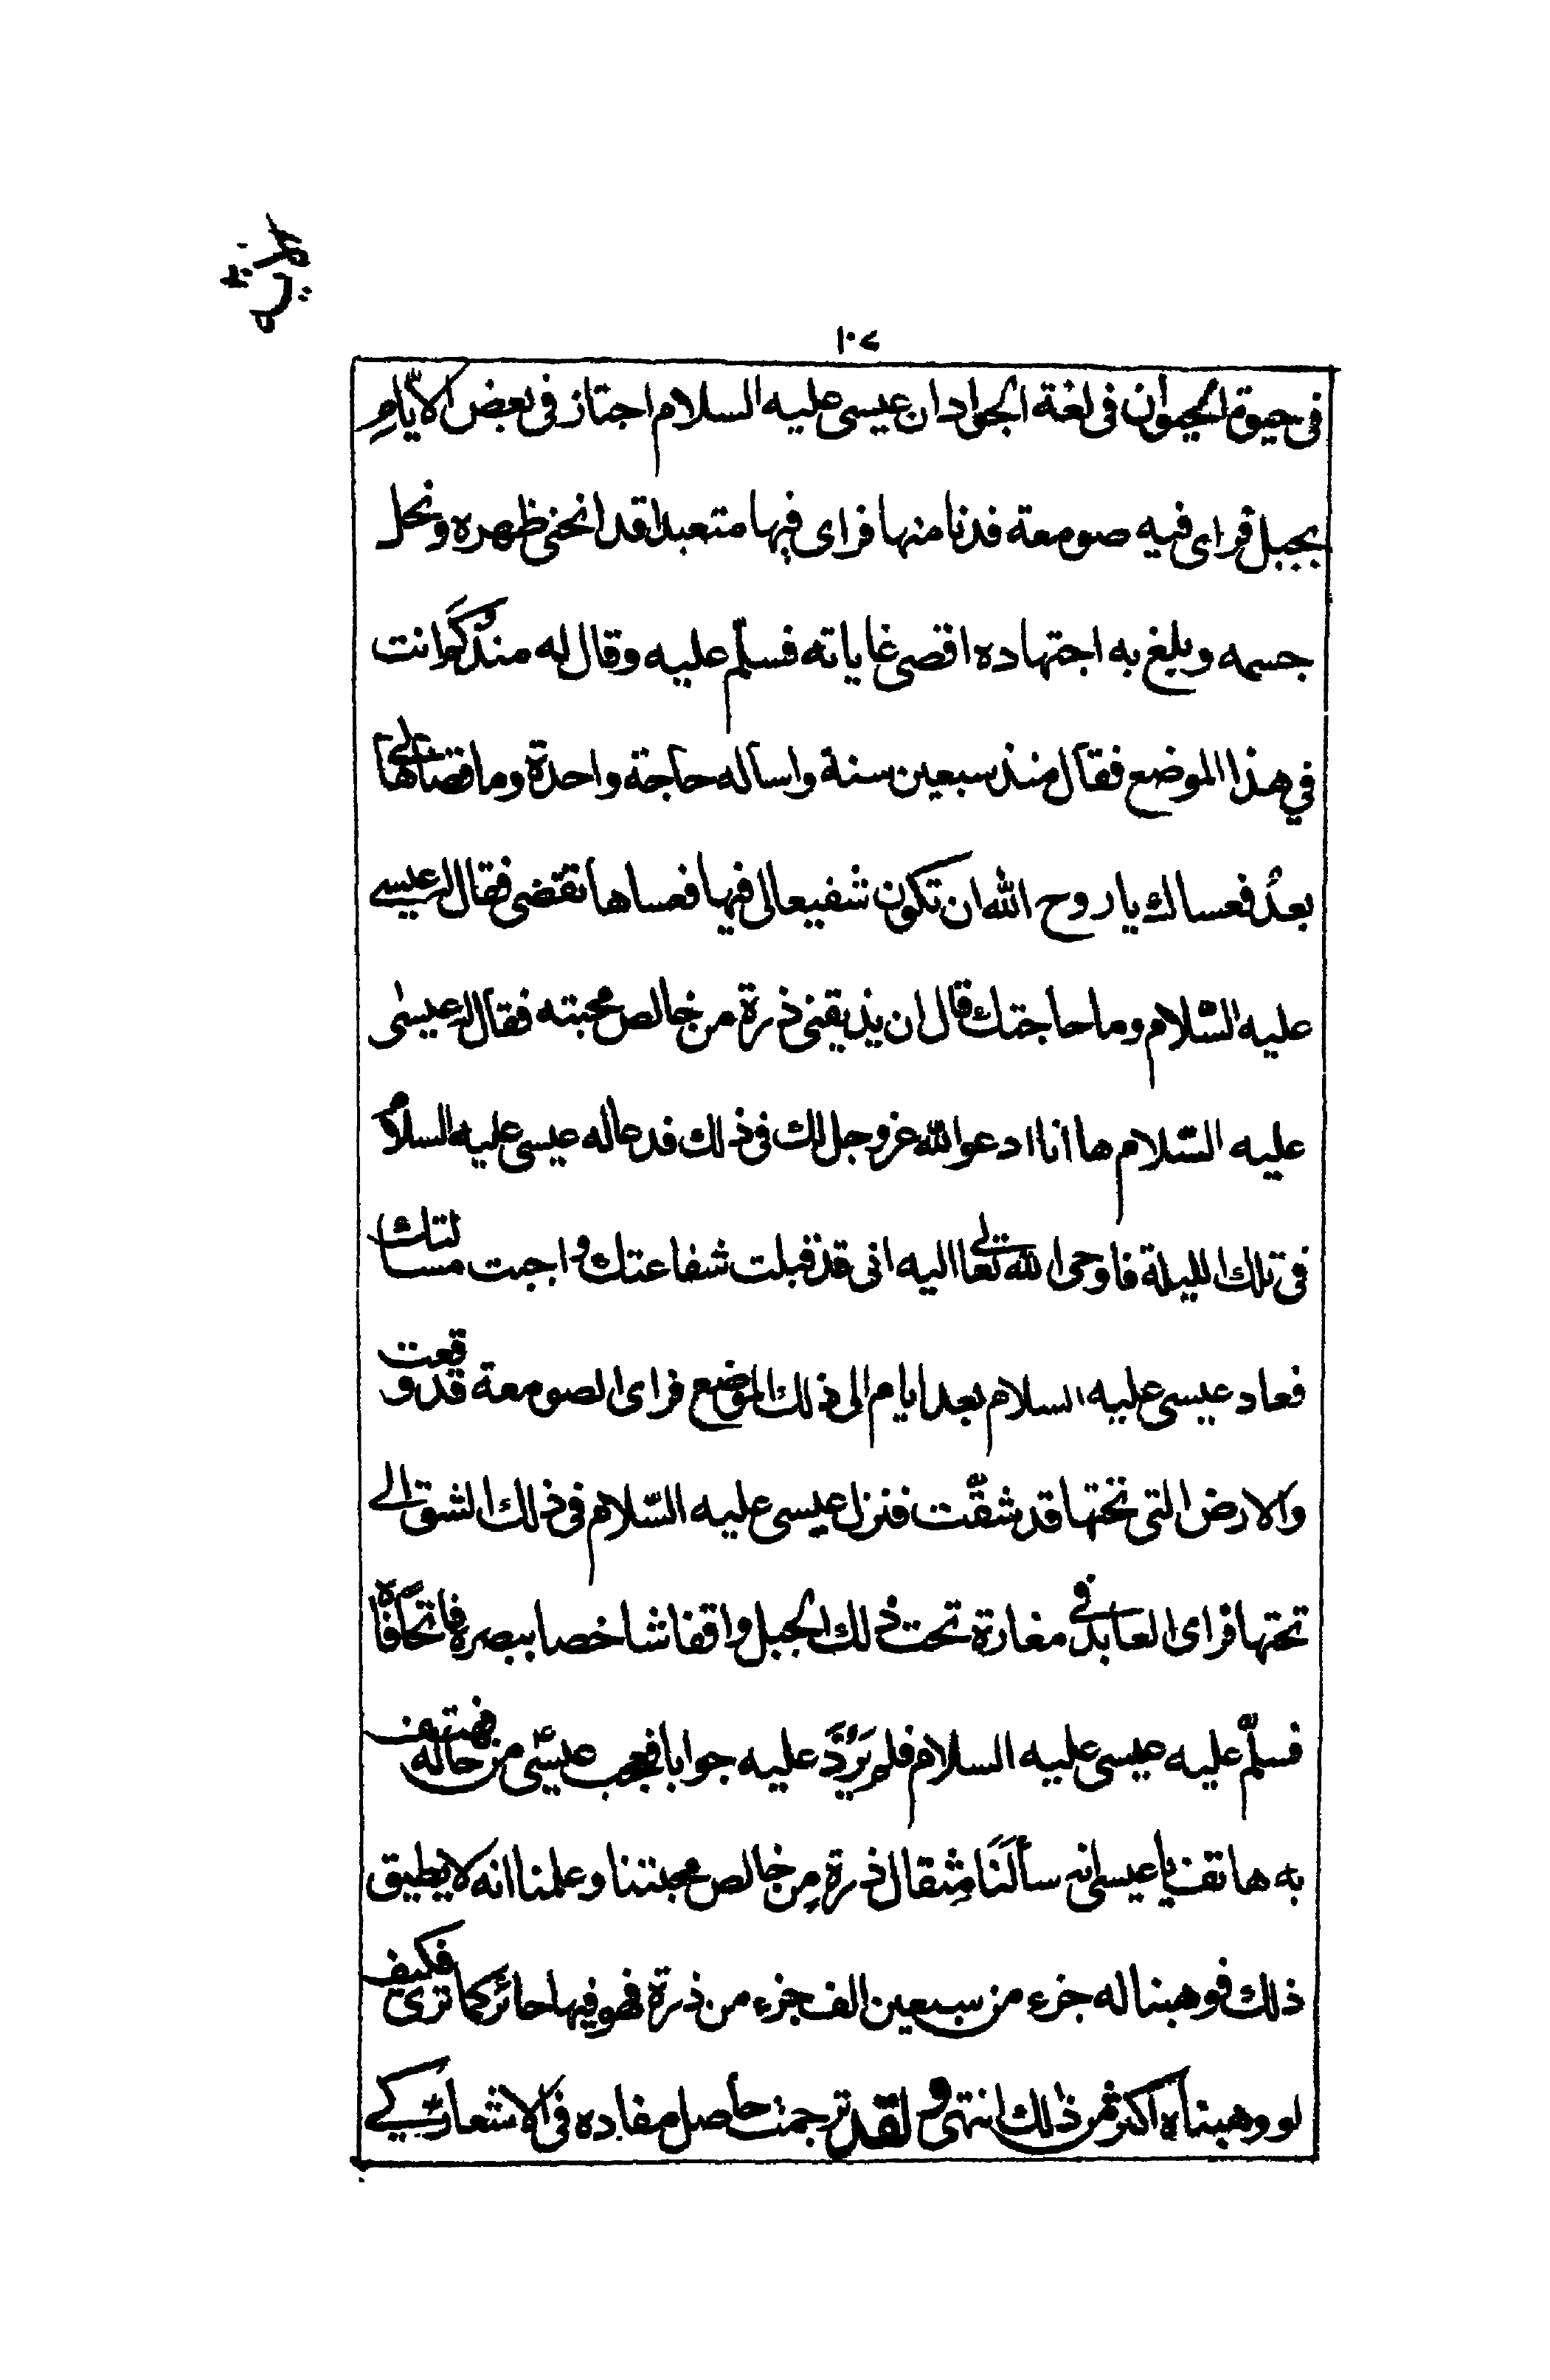 ١٠٧
في حيوة الحيوان في لغة الجواد ان عيسى عليه السلام اجتاز في بعض الايّامِ
بجبل فراى فيه صومعة فدنا منها فراى فيها متعبدا قد انحنى ظهره ونحل
جسمه وبلغ به اجتهاده اقصى غاياته فسلّم عليه وقال له منذ كم انت
في هذا الموضع فقال منذ سبعين سنة واساله حاجة واحدة وما قضاها لي
بعدُ فعساك يا روح الله ان تكون شفيعا لى فيها فعساها تقضى فقال له عيسى
عليه السّلام وما حاجتك قال ان يذيقنى ذرة من خالص محبته فقال له عيسىٰ
عليه السّلام ها انا ادعو الله عز وجل لك في ذلك فدعا له عيسى عليه السلام
في تلك الليلة فاوحى الله تعالى اليه انى قد قبلت شفاعتك و اجبت مسالتك
فعاد عيسى عليه السلام بعد ايام الى ذلك الموضع فراى الصومعة قد وقعت
والارض التى تحتها قد شقّت فنزل عيسى عليه السّلام في ذلك الشق الى
تحتها فراى العابد في مغارة تحت ذلك الجبل واقفا شاخصا ببصره فاتحا فاه
فسلّم عليه عيسى عليه السلام فلم يَرُدَّ عليه جوابا فعجب عيسىؑ من حاله فهتف
به هاتف يا عيسى انه سألَنَا مِثقال ذرة مِن خالص محبتنا وعلمنا انه لا يطيق
ذلك فوهبنا له جزء من سبعين الف جزء من ذرة فهو فيها حائر كما ترى فكيف
لو وهبناه اكثر من ذلك انتهى و لقد ترجمت حاصل مفاده في الاشعار كے